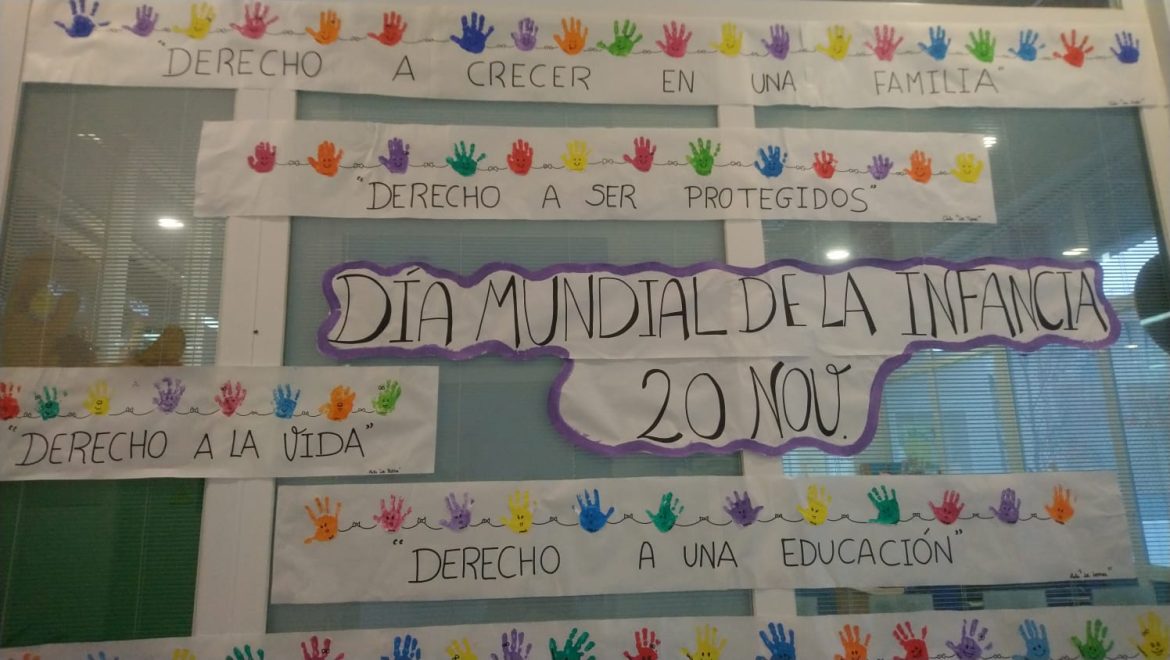 "DERECHO A CRECER EN UNA FAMILIA"
"DERECHO A SER PROTEGIDOS"
DÍA MUNDIAL DE LA INFANCIA
20 NOV.
"DERECHO A LA VIDA"
"DERECHO A UNA EDUCACIÓN"